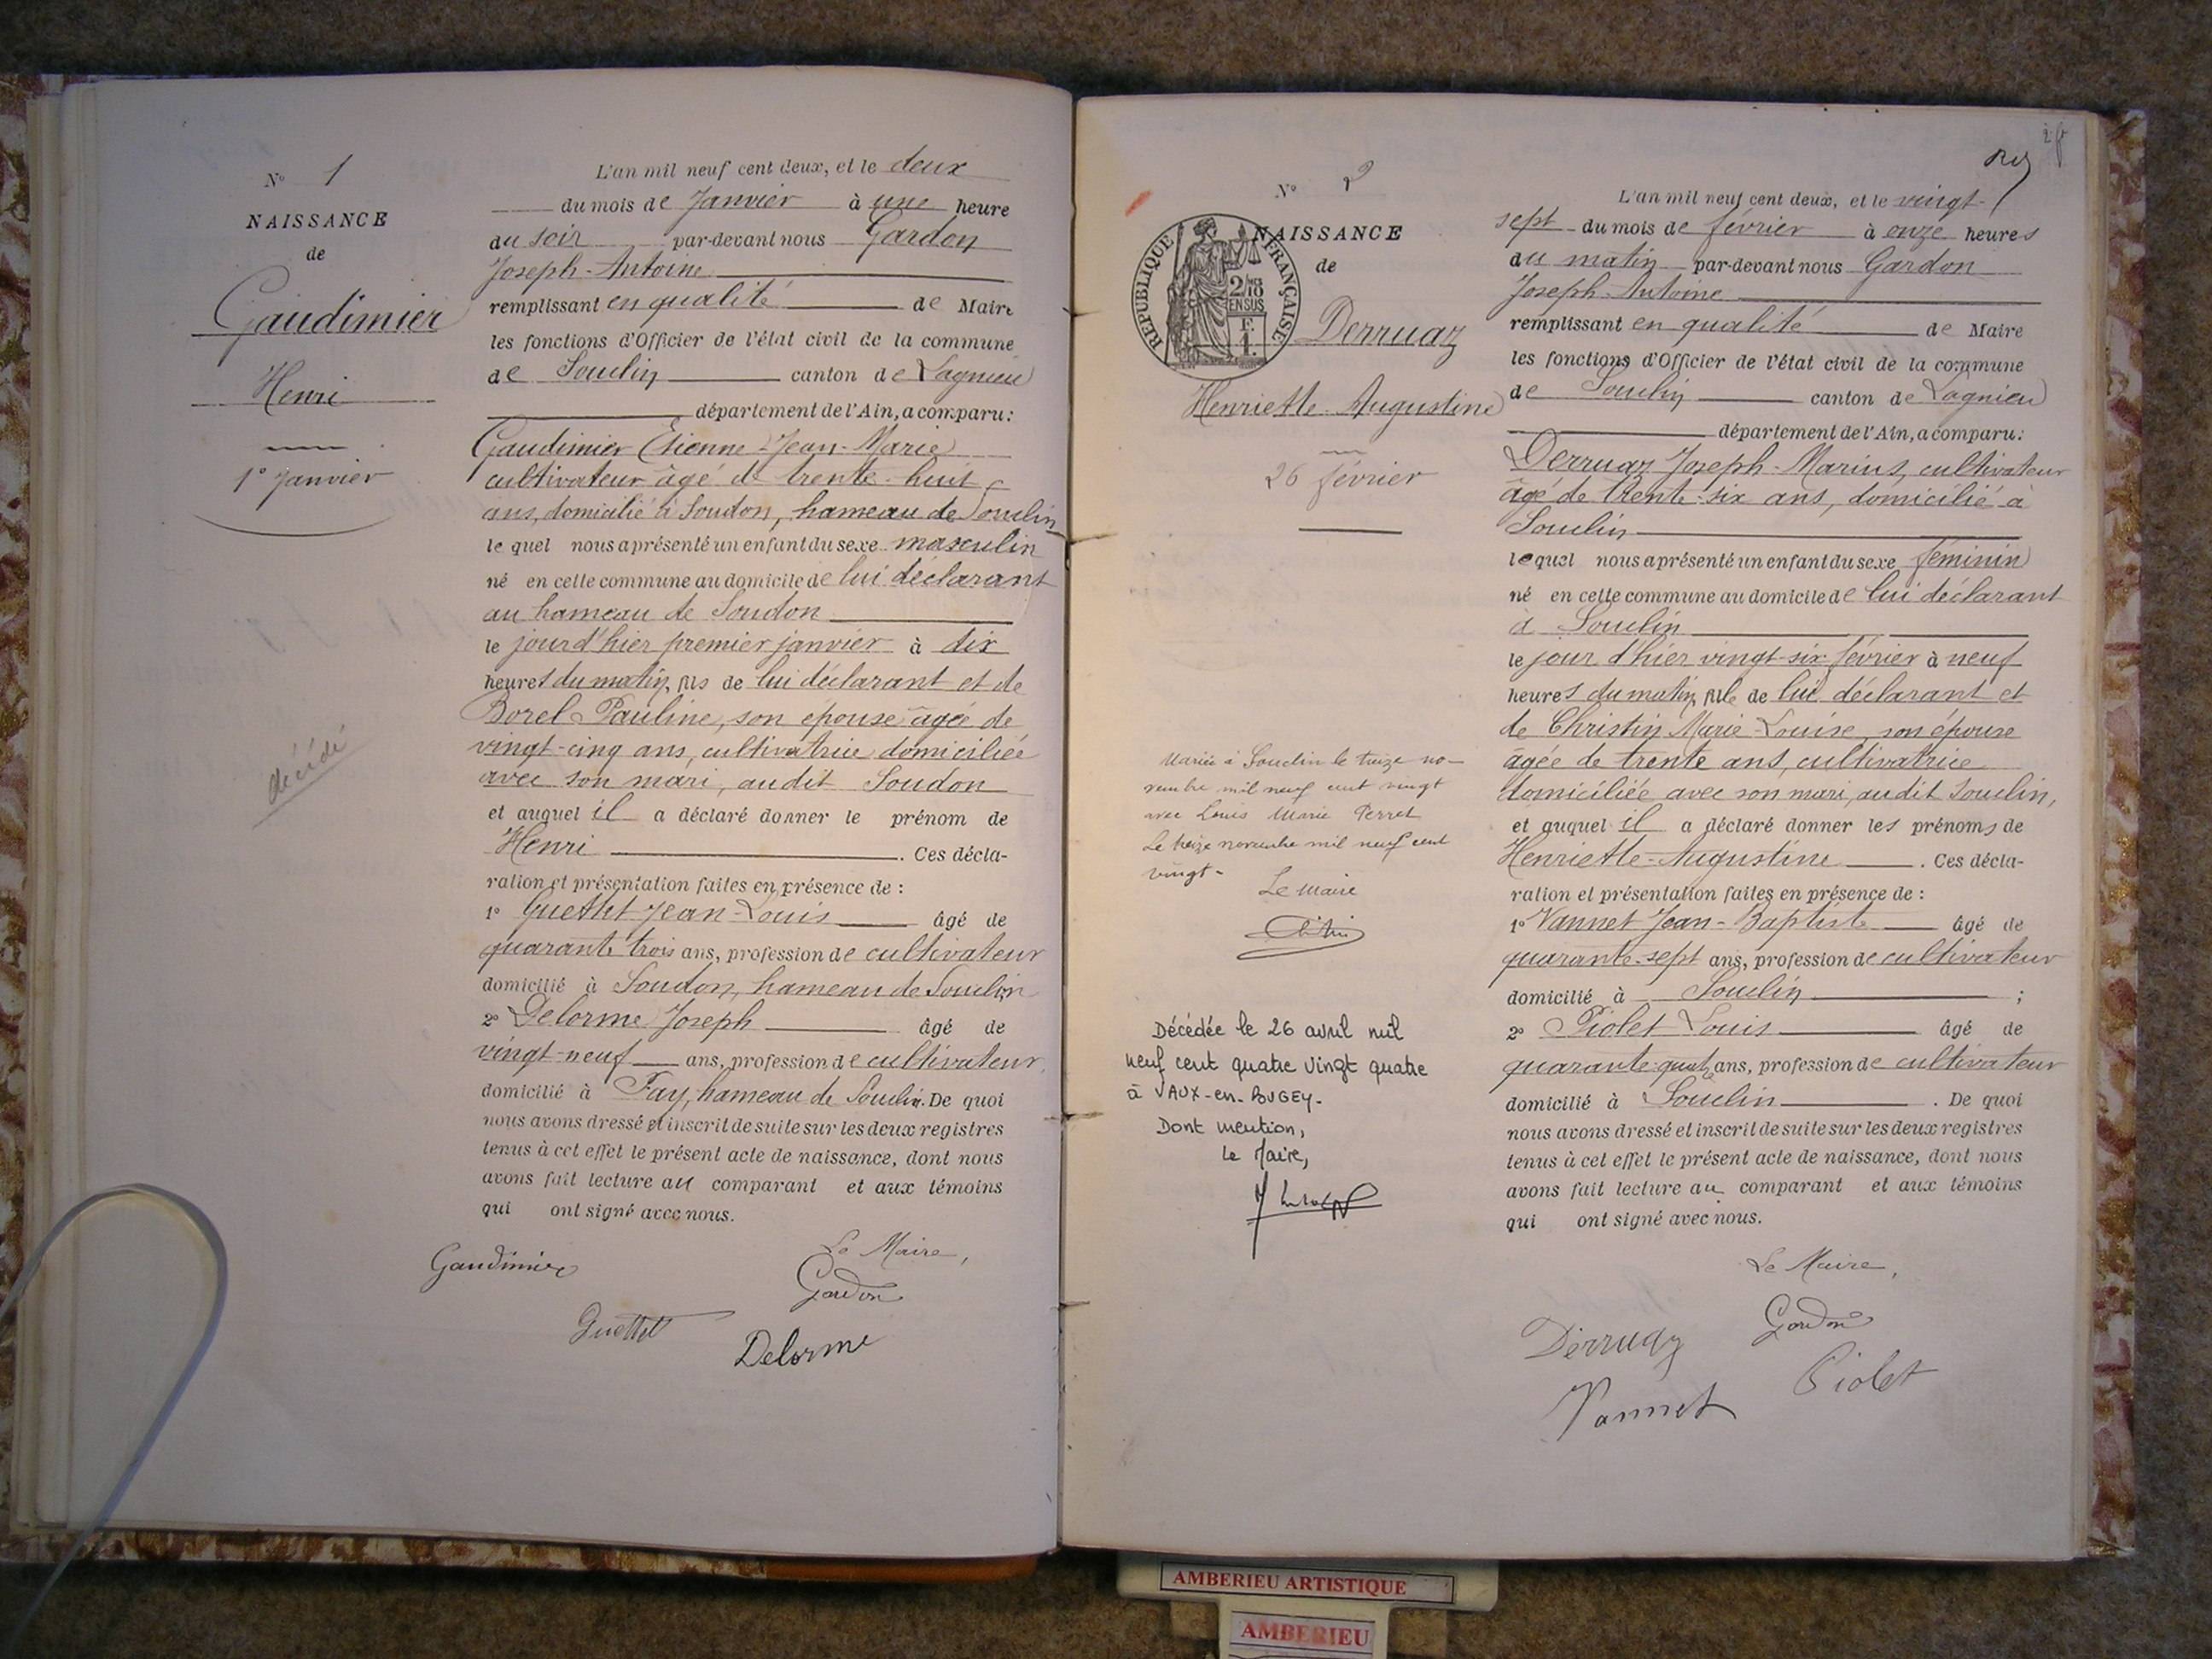 N° 1
NAISSANCE
de
Gaudimier
Henri
1er Janvier
décédé
L'an mil neuf cent deux, et le deux
du mois de Janvier à une heure
du soir par-devant nous Gardon
Joseph-Antoine
remplissant en qualité de Maire
les fonctions d'Officier de l'état civil de la commune
de Souclin canton de Lagnieu
département de l'Ain, a comparu:
Gaudimier Etienne-Jean-Marie
cultivateur âgé de trente-huit
ans, domicilié à Soudon, hameau de Souclin
le quel nous a présenté un enfant du sexe masculin
né en cette commune au domicile de lui déclarant
au hameau de Soudon
le jour d'hier premier janvier à dix
heures du matin, fils de lui déclarant et de
Borel Pauline, son épouse âgée de
vingt-cinq ans, cultivatrice domiciliée
avec son mari, audit Soudon
et auquel il a déclaré donner le prénom de
Henri . Ces décla-
ration et présentation faites en présence de :
1° Guettet Jean-Louis âgé de
quarante trois ans, profession de cultivateur
domicilié à Soudon, hameau de Souclin
2° Delorme Joseph âgé de
vingt-neuf ans, profession de cultivateur
domicilié à Fay, hameau de Souclin. De quoi
nous avons dressé et inscrit de suite sur les deux registres
tenus à cet effet le présent acte de naissance, dont nous
avons fait lecture au comparant et aux témoins
qui ont signé avec nous.
Le Maire,
Gaudimier
Gardon
Guettet
Delorme
N° 2
NAISSANCE
de
RÉPUBLIQUE FRANÇAISE
2/10
EN SUS
F.
1.
Derruaz
Henriette-Augustine
26 février
Mariée à Souclin le treize no-
vembre mil neuf cent vingt
avec Louis Marie Perret
Le treize novembre mil neuf cent
vingt-
Le Maire
Décédée le 26 avril mil
neuf cent quatre vingt quatre
à VAUX-en-BUGEY-
Dont mention,
Le Maire,
L'an mil neuf cent deux, et le vingt-
sept du mois de février à onze heures
du matin par-devant nous Gardon
Joseph-Antoine
remplissant en qualité de Maire
les fonctions d'Officier de l'état civil de la commune
de Souclin canton de Lagnieu
département de l'Ain, a comparu:
Derruaz Joseph-Marius, cultivateur
âgé de trente-six ans, domicilié à
Souclin
lequel nous a présenté un enfant du sexe féminin
né en cette commune au domicile de lui déclarant
à Souclin
le jour d'hier vingt-six février à neuf
heures du matin, fille de lui déclarant et
de Christin Marie-Louise, son épouse
âgée de trente ans, cultivatrice
domiciliée avec son mari, audit Souclin,
et auquel il a déclaré donner les prénoms de
Henriette-Augustine . Ces décla-
ration et présentation faites en présence de :
1° Vannet Jean-Baptiste âgé de
quarante-sept ans, profession de cultivateur
domicilié à Souclin ;
2° Piolet Louis âgé de
quarante-quatre ans, profession de cultivateur
domicilié à Souclin . De quoi
nous avons dressé et inscrit de suite sur les deux registres
tenus à cet effet le présent acte de naissance, dont nous
avons fait lecture au comparant et aux témoins
qui ont signé avec nous.
Le Maire,
Derruaz
Gardon
Vannet
Piolet
AMBERIEU ARTISTIQUE
AMBERIEU